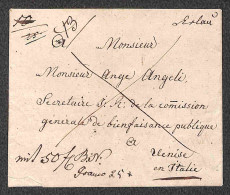 Monsieur
Monsieur Ange Angeli
Secretaire S. H. de la comission
generale de bienfaisance publique
a
Venise
en Italie
mit 50 f
franco